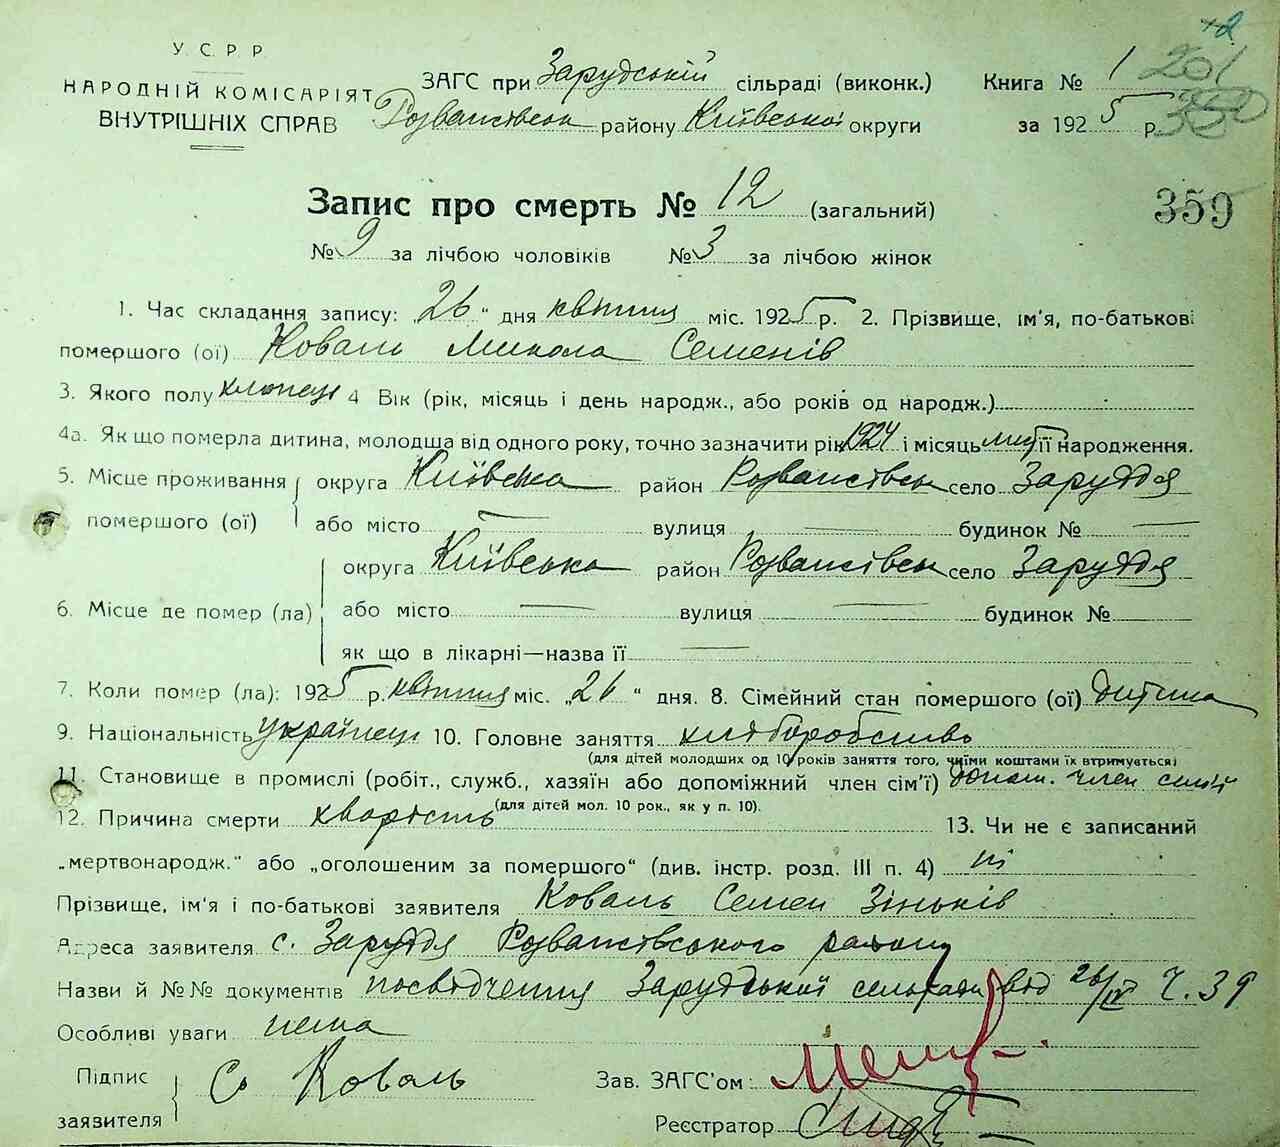 У С. Р. Р.
НАРОДНІЙ КОМІСАРІЯТ
ВНУТРІШНІХ СПРАВ
ЗАГС при Зарудській сільраді (виконк.)
Розважівськ району Київської округи
Книга № 1 201
за 1925 р. 350
Запис про смерть № 12 (загальний)
359
№ 9 за лічбою чоловіків № 3 за лічбою жінок
1. Час складання запису: „26" дня квітня міс. 1925 р. 2. Прізвище, ім'я, по-батькові
помершого (ої) Коваль Микола Семенів
3. Якого полу хлопець 4 Вік (рік, місяць і день народж., або років од народж.)
4а. Як що померла дитина, молодша від одного року, точно зазначити рік 1924 і місяць її народження.
5. Місце проживання округа Київська район Розважівськ село Заруддя
помершого (ої) або місто — вулиця — будинок № —
округа Київська район Розважівськ село Заруддя
6. Місце де помер (ла) або місто — вулиця — будинок №
як що в лікарні—назва її —
7. Коли помер (ла): 1925 р. квітня міс. „26" дня. 8. Сімейний стан помершого (ої) дитина
9. Національність українець 10. Головне заняття хліборобство
(для дітей молодших од 10 років заняття того, чиїми коштами їх втримується)
11. Становище в промислі (робіт., служб., хазяїн або допоміжний член сім'ї) допом. член сімї
(для дітей мол. 10 рок., як у п. 10).
12. Причина смерти хворість 13. Чи не є записаний
„мертвонародж." або „оголошеним за помершого" (див. інстр. розд. III п. 4) ні
Прізвище, ім'я і по-батькові заявителя Коваль Семен Зіньків
Адреса заявителя с. Заруддя Розважівського району
Назви й №№ документів посвідчення Зарудської сельради від 26/IV Ч. 39
Особливі уваги нема
Підпис
заявителя С Коваль
Зав. ЗАГС'ом
Реєстратор